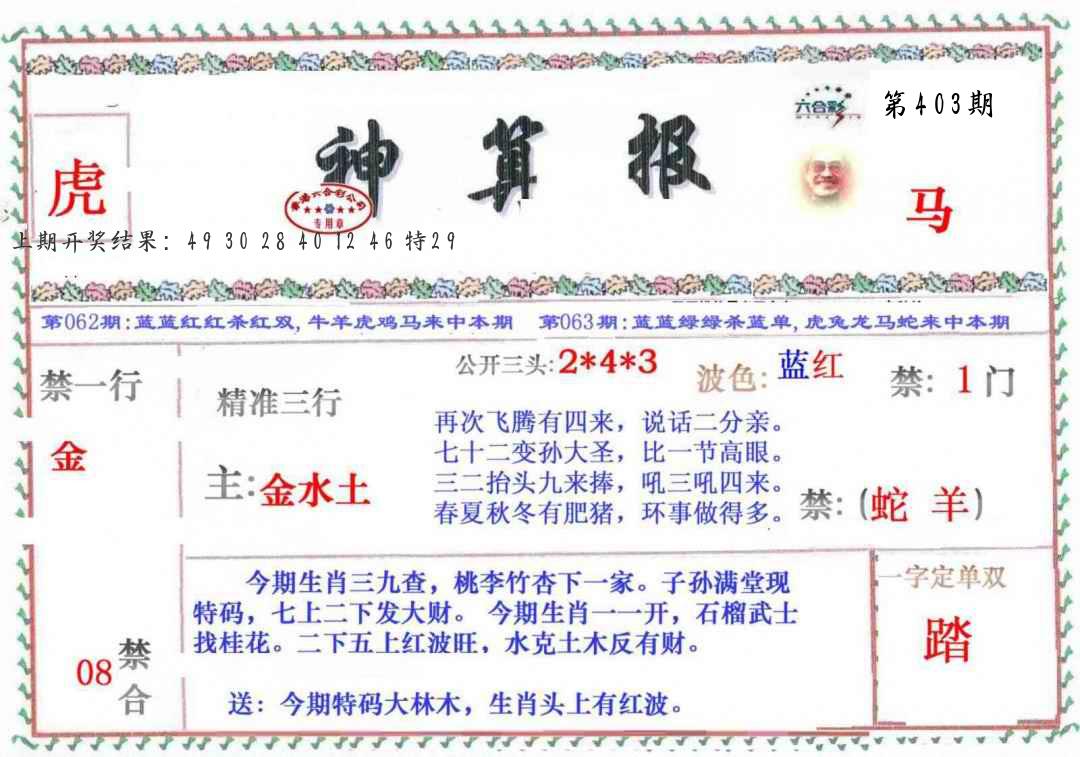 六合彩
第403期
神算报
虎
香港六合彩公司
专用章
马
上期开奖结果: 49 30 28 40 12 46 特29
第062期:蓝蓝红红杀红双,牛羊虎鸡马来中本期 第063期:蓝蓝绿绿杀蓝单,虎兔龙马蛇来中本期
禁一行
金
精准三行
主:金水土
公开三头:2*4*3
波色:蓝红
禁: 1门
再次飞腾有四来，说话二分亲。
七十二变孙大圣，比一节高眼。
三二抬头九来捧，吼三吼四来。
春夏秋冬有肥猪，环事做得多。
禁:(蛇 羊)
08
禁合
今期生肖三九查，桃李竹杏下一家。子孙满堂现
特码，七上二下发大财。 今期生肖一一开，石榴武士
找桂花。二下五上红波旺，水克土木反有财。
送：今期特码大林木，生肖头上有红波。
一字定单双
踏